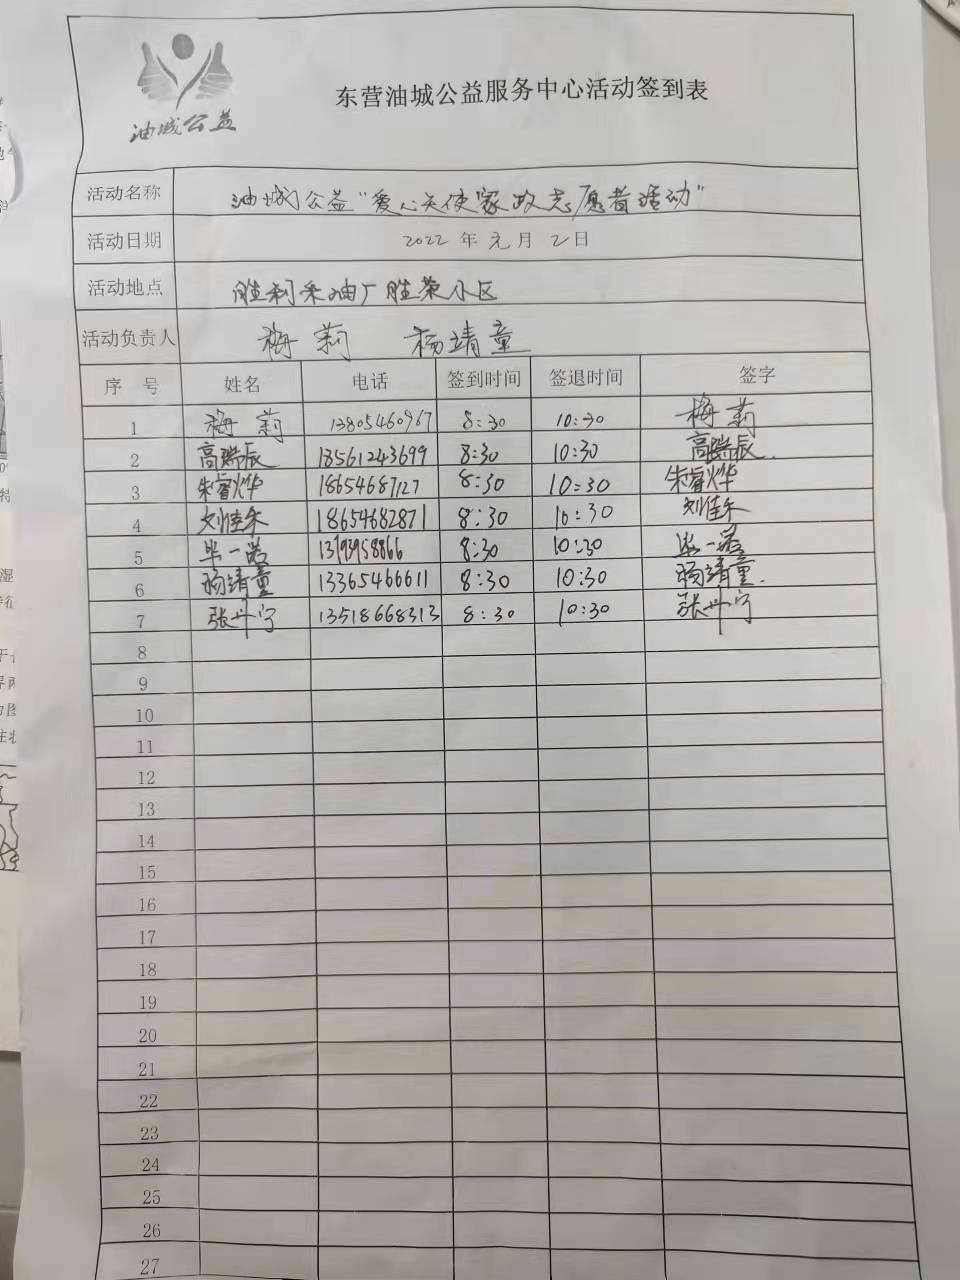 油城公益
东营油城公益服务中心活动签到表
活动名称 油城公益"爱心天使家政志愿者活动"
活动日期 2022年元月2日
活动地点 胜利采油厂胜荣小区
活动负责人 梅莉 杨靖童
序号 姓名 电话 签到时间 签退时间 签字
1 梅莉 13805460967 8:30 10:30 梅莉
2 高瑞辰 18561243699 8:30 10:30 高瑞辰.
3 朱睿烨 18654687127 8:30 10:30 朱睿烨
4 刘佳禾 18654682871 8:30 10:30 刘佳禾
5 毕一诺 8:30 10:30 毕一诺
6 杨靖童 13365466611 8:30 10:30 杨靖童.
7 张丹宁 13518668313 8:30 10:30 张丹宁
8
9
10
11
12
13
14
15
16
17
18
19
20
21
22
23
24
25
26
27